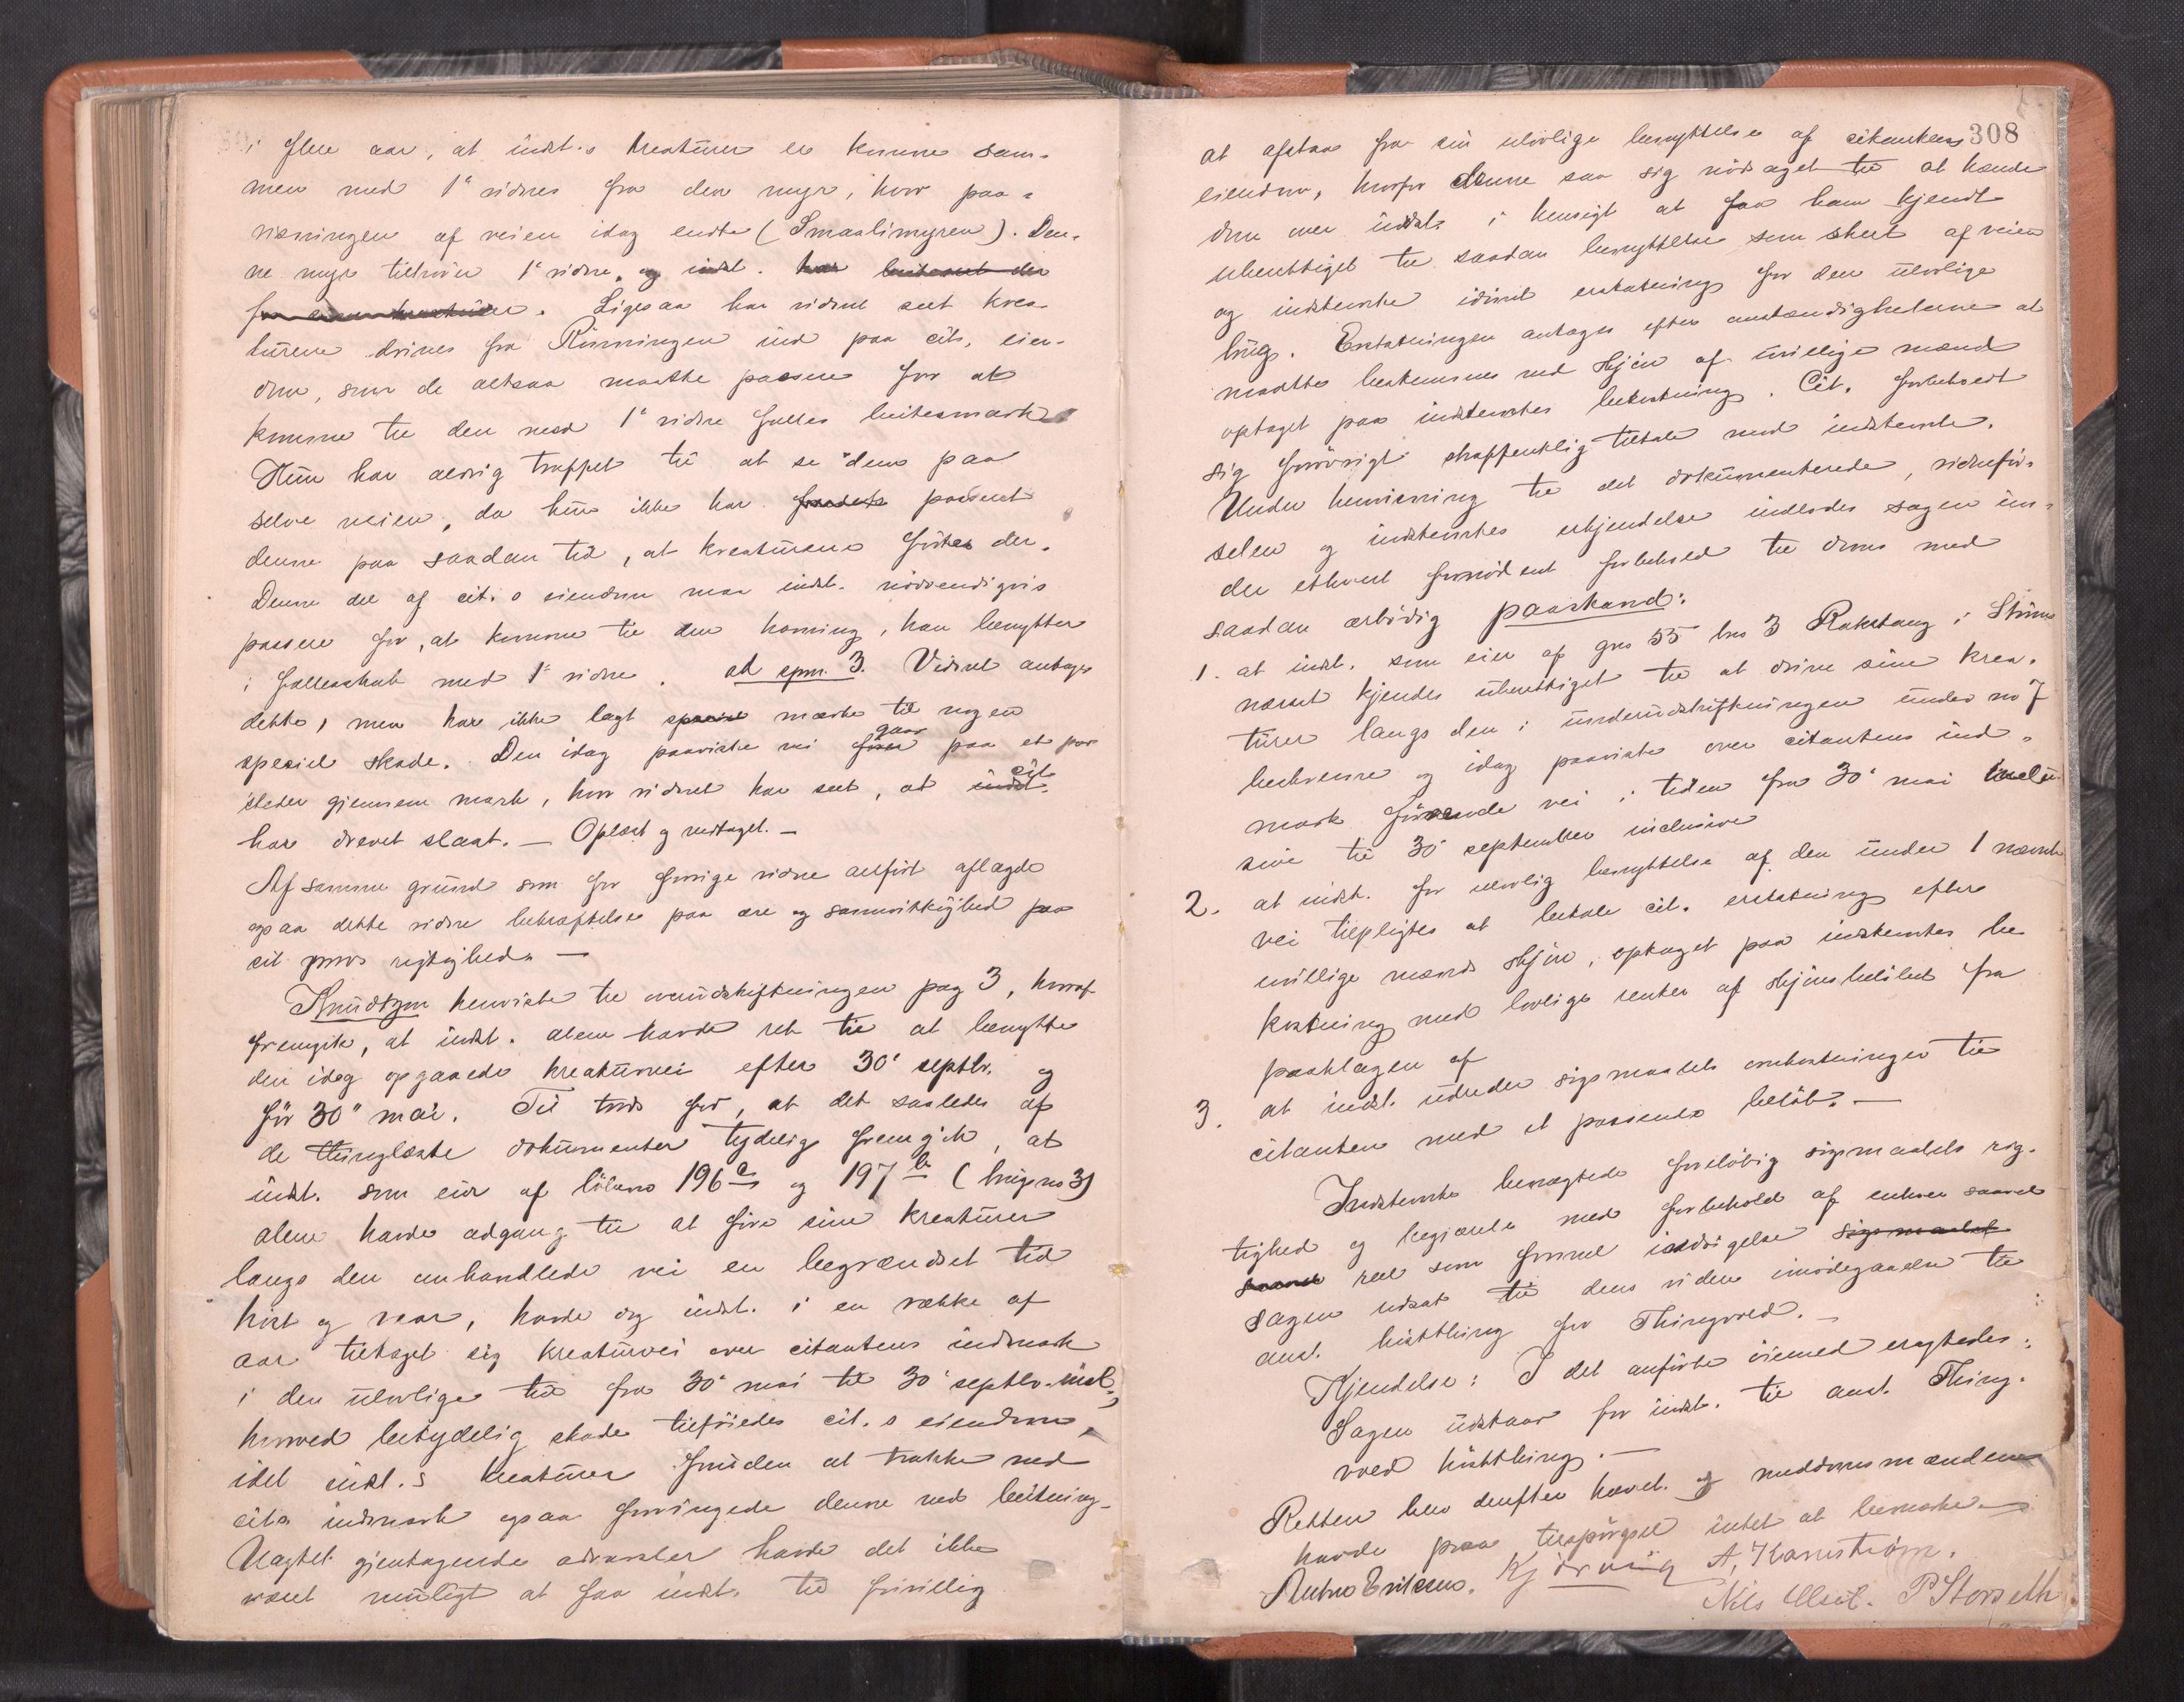 i flere aar, at indst.s kreaturer er komne sam-
men med 1ste vidnes fra den myr, hvor paa-
visningen af veien idag endte (Smaalimyren). Den-
ne myr tilhører 1ste vidne og indst. har beitesret der
for sine kreaturer. Ligesaa har vidnet seet krea-
turene drives fra Rønningen ind paa cits. eien-
dom, som de altsaa maatte passere for at
komme til den med 1ste vidne fælles beitesmark
Hun har aldrig truffet til at se dem paa
selve veien, da hun ikke har passeret
denne paa saadan tid, at kreaturene førtes der.
Denne del af cit.s eiendom maa indst. nødvendigvis
passere for, at komme til den havning, han benytter
i fællesskab med 1ste vidne. ad spm. 3. Vidnet antager
dette, men har ikke lagt speciel mærke til nogen
speciel skade. Den idag paaviste vei fører gaar paa et par
steder gjennem mark, hvor vidnet har seet, at indst. cit.
har drevet slaat. — Oplæst og vedtaget. —
Af samme grund som for forrige vidne anført aflagde
ogsaa dette vidne bekræftelse paa ære og samvittighed paa
sit provs rigtighed. —
Knudtzon henviste til overudskiftningen pag 3, hvoraf
fremgik, at indst. alene havde ret til at benytte
den idag opgaaede kreaturvei efter 30' septbr. og
før 30" mai. Til trods for, at det saaledes af
de thinglæste dokumenter tydelig fremgik, at
indst. som eier af løbeno 196a og 197b (brugsno 3)
alene havde adgang til at føre sine kreaturer
langs den omhandlede vei en begrændset tid
høst og vaar, havde dog indst. i en række af
aar tiltaget sig kreaturvei over citantens indmark
i den ulovlige tid fra 30' mai til 30' septbr. incl,
hvorved betydelig skade tilføiedes cit.s eiendom,
idet indst.s kreaturer foruden at trakke ned
cits. indmark ogsaa forringede denne ved beitning.
Uagtet gjentagende advarsler havde det ikke
været muligt at faa indst. til frivillig
308
at afstaa fra sin ulovlige benyttelse af citantens
eiendom, hvorfor denne saa sig nødsaget til at hente
dom over indst. i hensigt at faa ham kjendt
uberettiget til saadan benyttelse som skeet af veien
og indstevnte idømt erstatning for den ulovlige
brug. Erstatningen antages efter omstændighederne at
maatte bestemmes ved skjøn af uvillige mænd
optaget paa indstevntes bekostning. Cit. forbeholdt
sig forøvrigt strafferetlig tiltale mod indstevnte.
Under henvisning til det dokumenterede, vidneførs-
selen og indstevntes erkjendelse indlodes sagen un-
der ethvert fornødent forbehold til doms med
saadan ærbødig paastand:
1. at indst. som eier af gno 55 bno 3 Rakstang i Strinn
næset kjendes uberettiget til at drive sine krea-
turer langs den i underudskiftningen under no 7
beskrevne og idag paaviste over citantens ind-
mark førende vei i tiden fra 30' mai inclu
sive til 30' september inclusive
2. at indst. for ulovlig benyttelse af den under 1 nævnte
vei tilpligtes at betale cit. erstatning efter
uvillige mænds skjøn, optaget paa indstevntes be
kostning med lovlige renter af skjønsbeløbet fra
paaklagen af
3. at indst. udreder sigsmaalets omkostninger til
citanten med et passende beløb. —
Indstevnte benægtede foreløbig sigsmaalets rig-
tighed og begjærte med forbehold af enhver saavel
saavel reel som formel indsigelse sigsmaalet
sagen udsat til dens videre imødegaaelse til
anst. høstthing for Thingvold. —
Kjendelse: I det anførte øiemed eragtedes:
Sagen udstaar for indst. til anst. Thing-
vold høstthing. —
Retten blev derefter hævet. og meddomsmændene
havde paa tilspørgsel intet at bemærke.
Kjørvig A. Hamstrøm.
Anton Eriksen. Nils Olsen. P Storseth